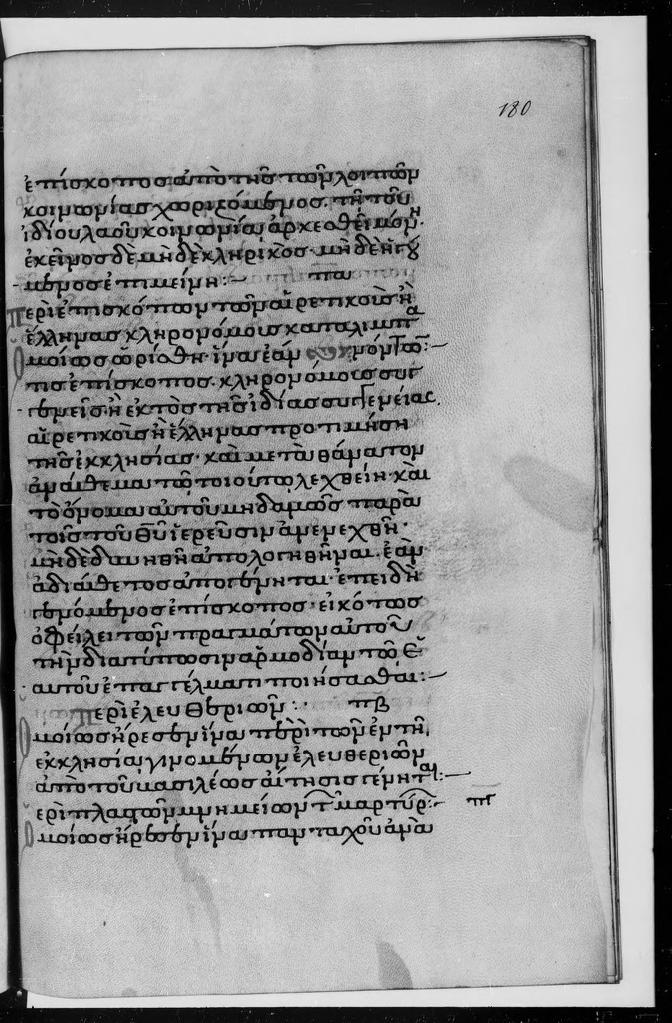 180
ἐπίσκοπος ἀπὸ τῆς τῶν λοιπῶν
κοινωνίας χωριζόμενος. τῇ τοῦ
ἰδίου λαοῦ κοινωνίᾳ ἀρκεσθῇ μόνῃ.
ἐκεῖνος δὲ μηδὲ κληρικὸς. μηδὲ ἡγού
μενος ἐπιμείνῃ:- πα
Περὶ ἐπισκόπων τῶν αἱρετικοὺς ἢ
ἕλληνας κληρονόμους καταλιμπα
νόντων:-
Ὁμοίως ὡρίσθη. ἵνα ἐάν
τις ἐπίσκοπος. κληρονόμους συγ
γενεῖς ἢ ἐκτὸς τῆς ἰδίας συγγενείας.
αἱρετικοὺς ἢ ἕλληνας προτιμήσῃ
τῆς ἐκκλησίας. καὶ μετὰ θάνατον
ἀνάθεμα τῷ τοιούτῳ λεχθείη. καὶ
τὸ ὄνομα αὐτοῦ μηδαμῶς παρὰ
τοῖς τοῦ θῦ ἱερεῦσιν ἀνενεχθῇ.
μηδὲ δυνηθῇ ἀπολογηθῆναι. ἐὰν
ἀδιάθετος ἀπογένηται. ἐπειδὴ
γενόμενος ἐπίσκοπος. εἰκότως
ὀφείλει τῶν πραγμάτων αὐτοῦ
τὴν διατύπωσιν ἁρμοδίαν τῷ ἑ
αυτοῦ ἐπαγγέλματι ποιήσασθαι:-
Περὶ ἐλευθεριῶν: πβ
Ὁμοίως ἤρεσεν ἵνα περὶ τῶν ἐν τῇ
ἐκκλησίᾳ γινομένων ἐλευθεριῶν
ἀπὸ τοῦ βασιλέως αἴτησις γένηται:-
ερὶ πλαστῶν μνημείων τ μαρτύρ:- πγ
Ὁμοίως ἤρεσεν ἵνα πανταχοῦ ἀνὰ